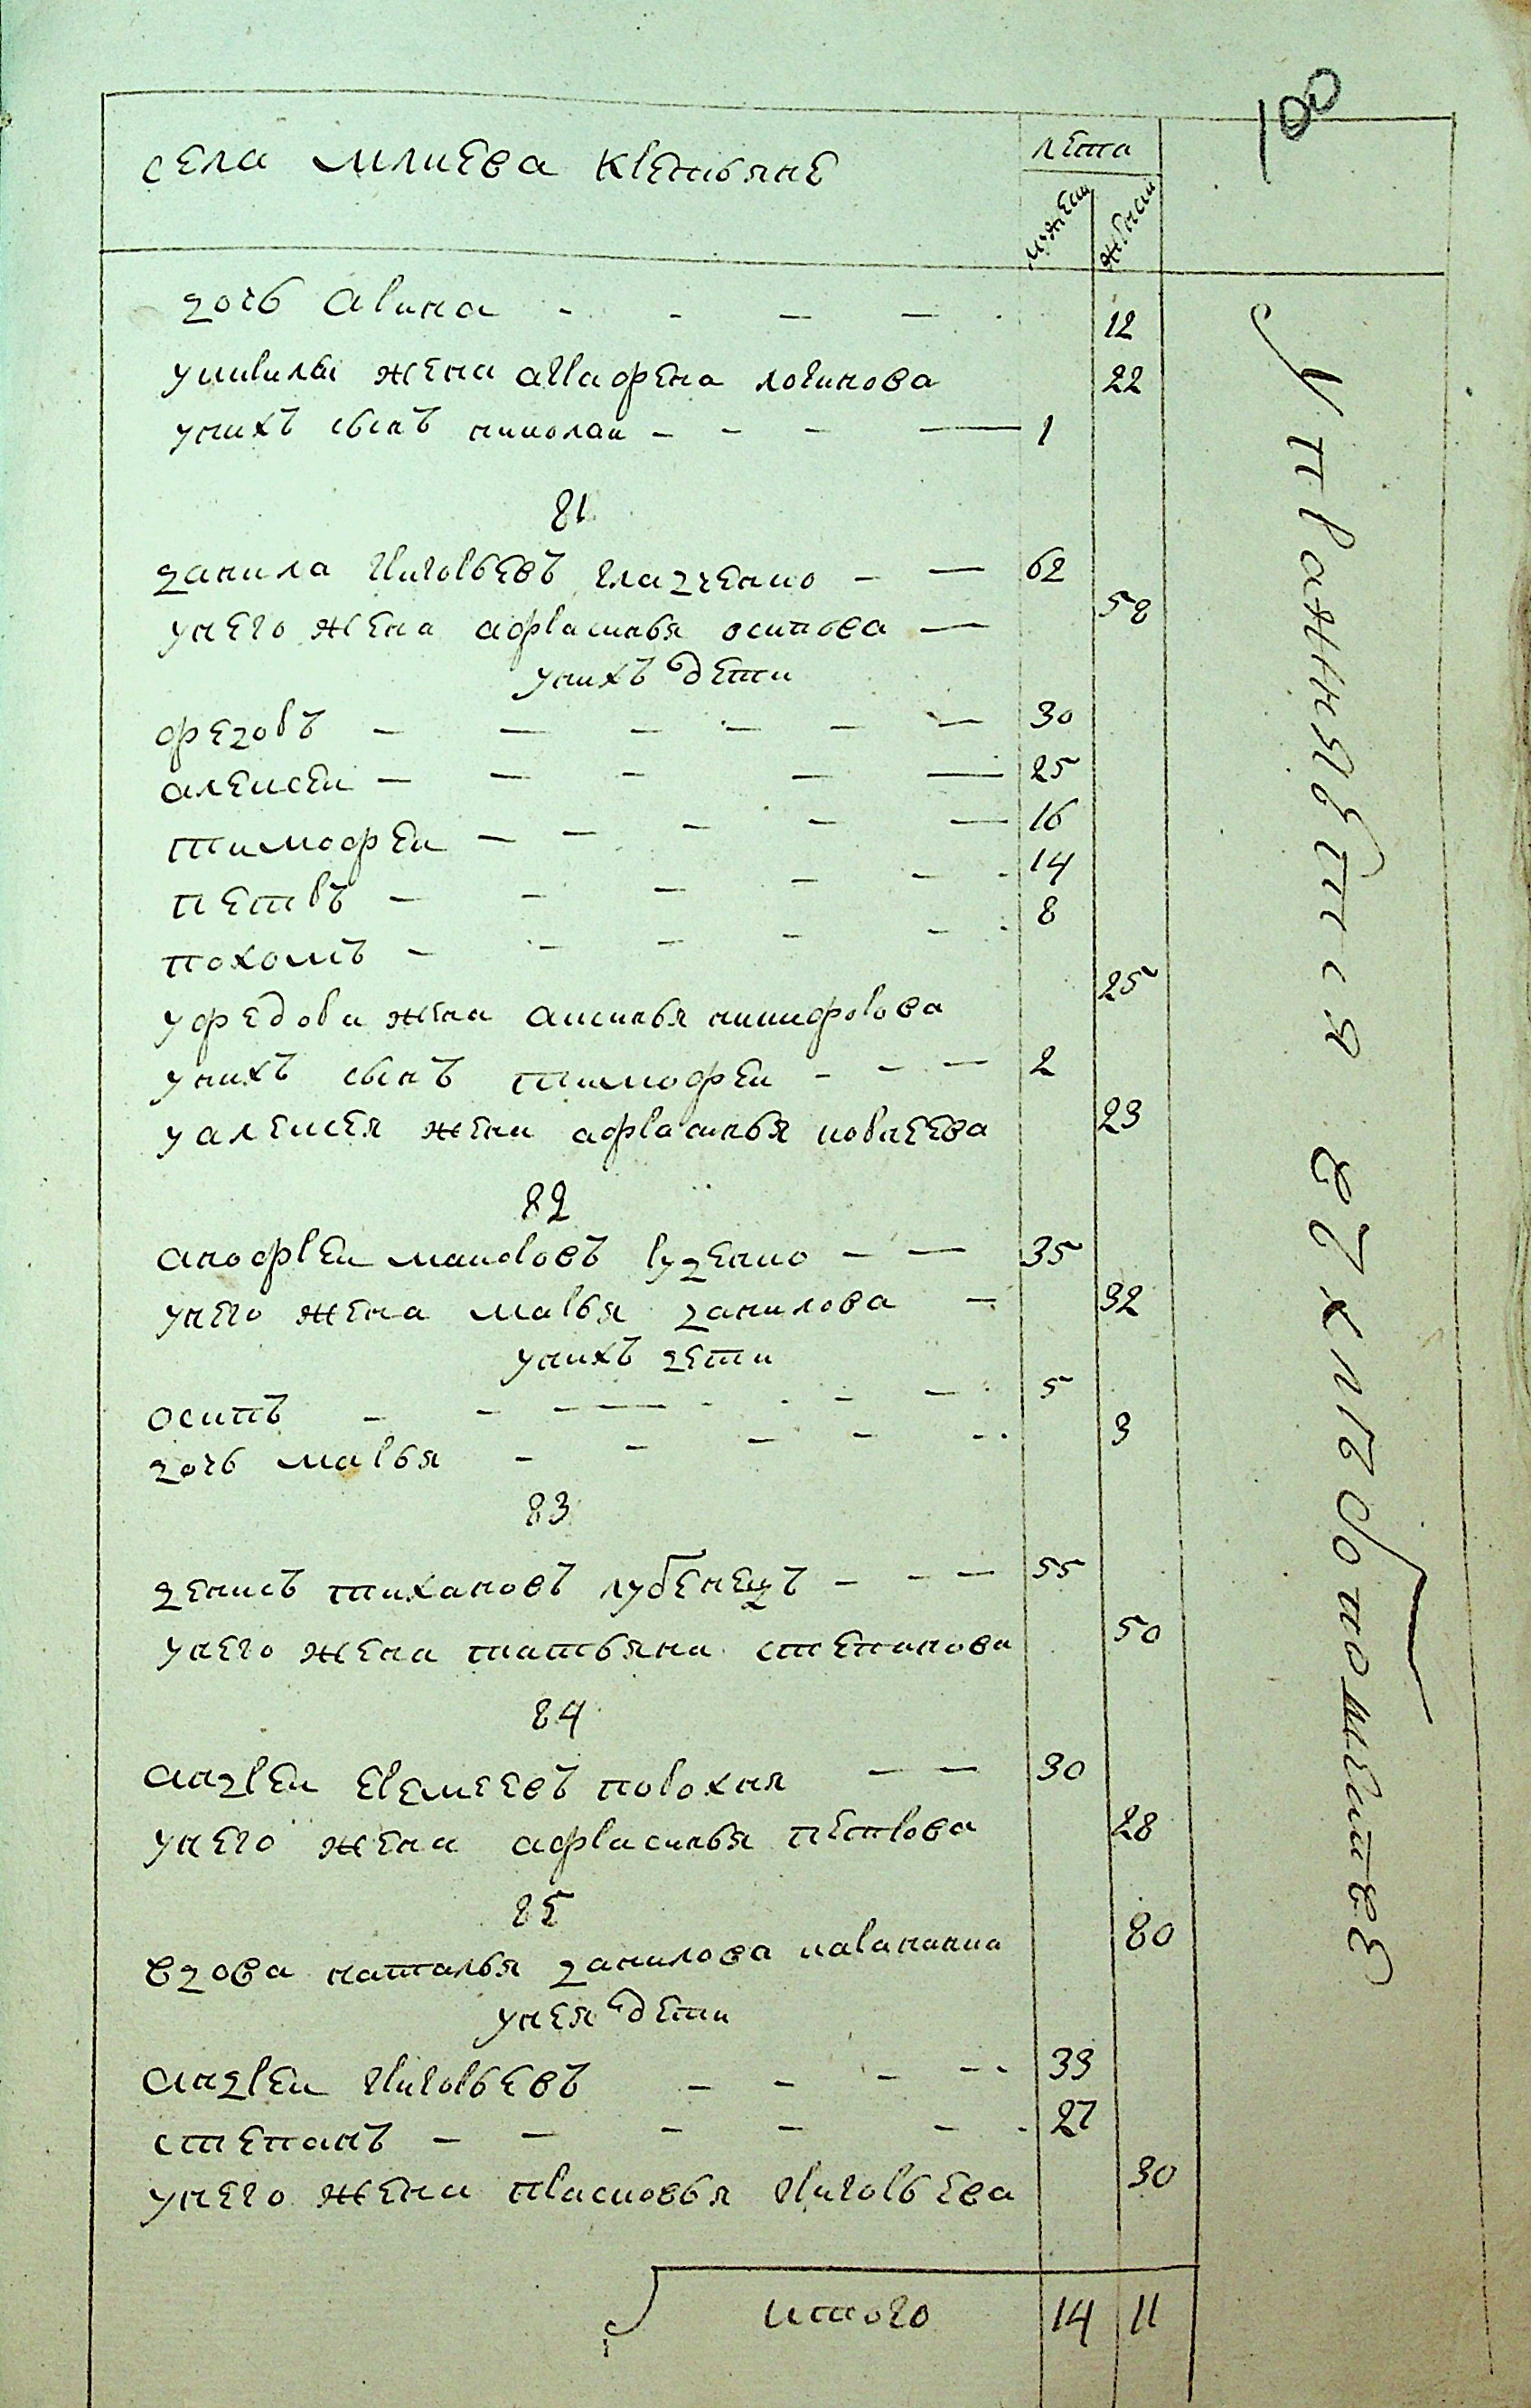 100
села млиева крестьяне
лета
мужеш
женсш
дочь арина 12
укирилы жена аграфена логинова 22
унихъ сынъ николаи 1
81
данила григорьевъ гладченко 62
унего жена афрасинья осипова 58
унихъ дети
федоръ 30
алексеи 25
тимофеи 16
петръ 14
похомъ 8
уфедора жена аксинья никифорова 25
унихъ сынъ тимофеи 2
уалексея жена афрасинья корнеева 23
82
анофреи макаровъ руденко 35
унего жена марья данилова 32
унихъ дети
осипъ 5
дочь марья 3
83
денисъ тихановъ лубенецъ 55
унего жена татьяна степанова 50
84
андреи еремеевъ порохня 30
унего жена афрасинья петрова 28
85
вдова наталья данилова 80
унея дети
андреи григорьевъ 33
степанъ 27
унего жена прасковья григорьева 30
итого 14 11
Упражняется вхлебопашестве